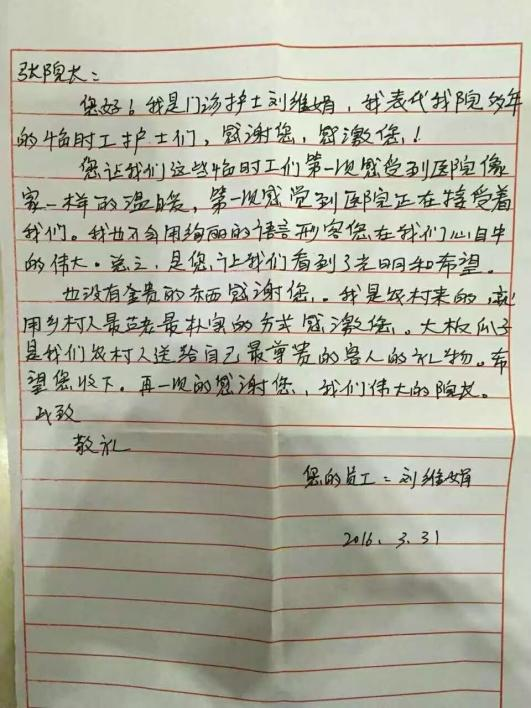 张院长：
您好！我是门诊护士刘维娟，我表代我院多年
的临时工护士们，感谢您，感激您！
您让我们这些临时工们第一次感受到医院像
家一样的温暖，第一次感觉到医院正在接受着
我们。我也不会用绚丽的语言形容您在我们心目中
的伟大。总之，是您，让我们看到了光明和希望。
也没有金贵的东西感谢您。我是农村来的，就
用乡村人最老最朴实的方式感激您。大板瓜子
是我们农村人送给自己最尊贵的客人的礼物。希
望您收下。再一次的感谢您，我们伟大的院长。
此致
敬礼
您的员工：刘维娟
2016.3.31